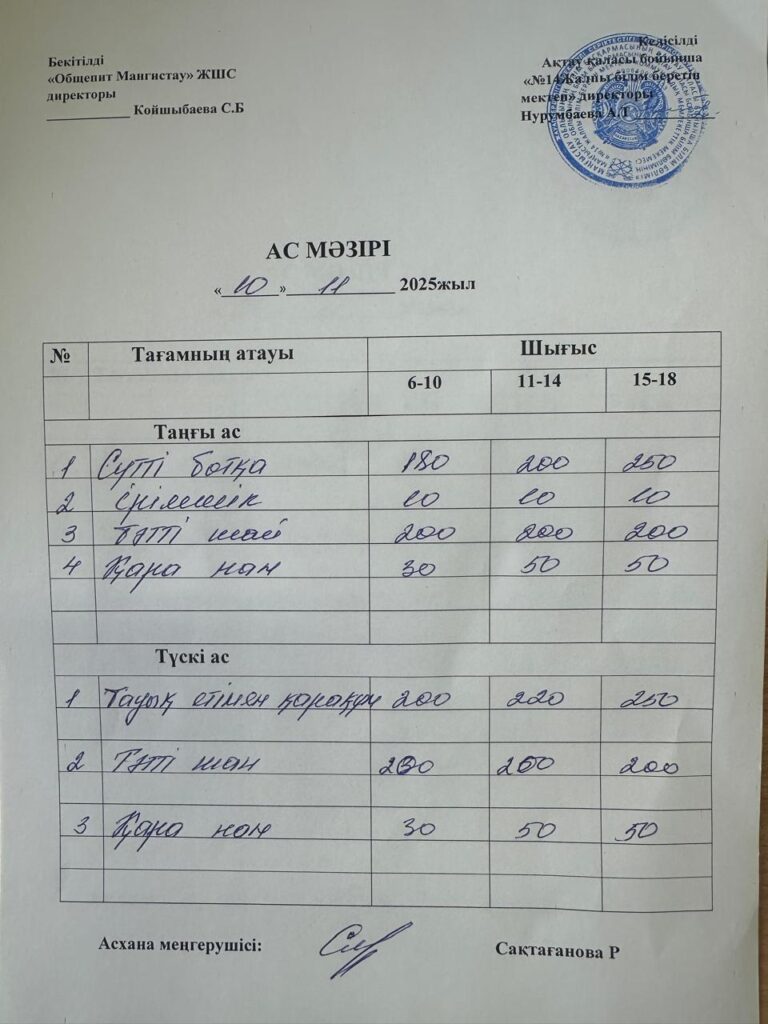 Бекітілді
«Общепит Мангистау» ЖШС
директоры
___________ Койшыбаева С.Б
Келісілді
Ақтау қаласы бойынша
«№14 Жалпы білім беретін
мектеп» директоры
Нурумбаева А.Т
АС МӘЗІРІ
«10» 11 2025жыл
№ Тағамның атауы Шығыс
6-10 11-14 15-18
Таңғы ас
1 Сүтті ботқа 180 200 250
2 ірімшік 10 10 10
3 тәтті шай 200 200 200
4 Қара нан 30 50 50
Түскі ас
1 Тауық етімен қарақұм 200 220 250
2 Тәтті шай 200 200 200
3 Қара нан 30 50 50
Асхана меңгерушісі: Сақтағанова Р